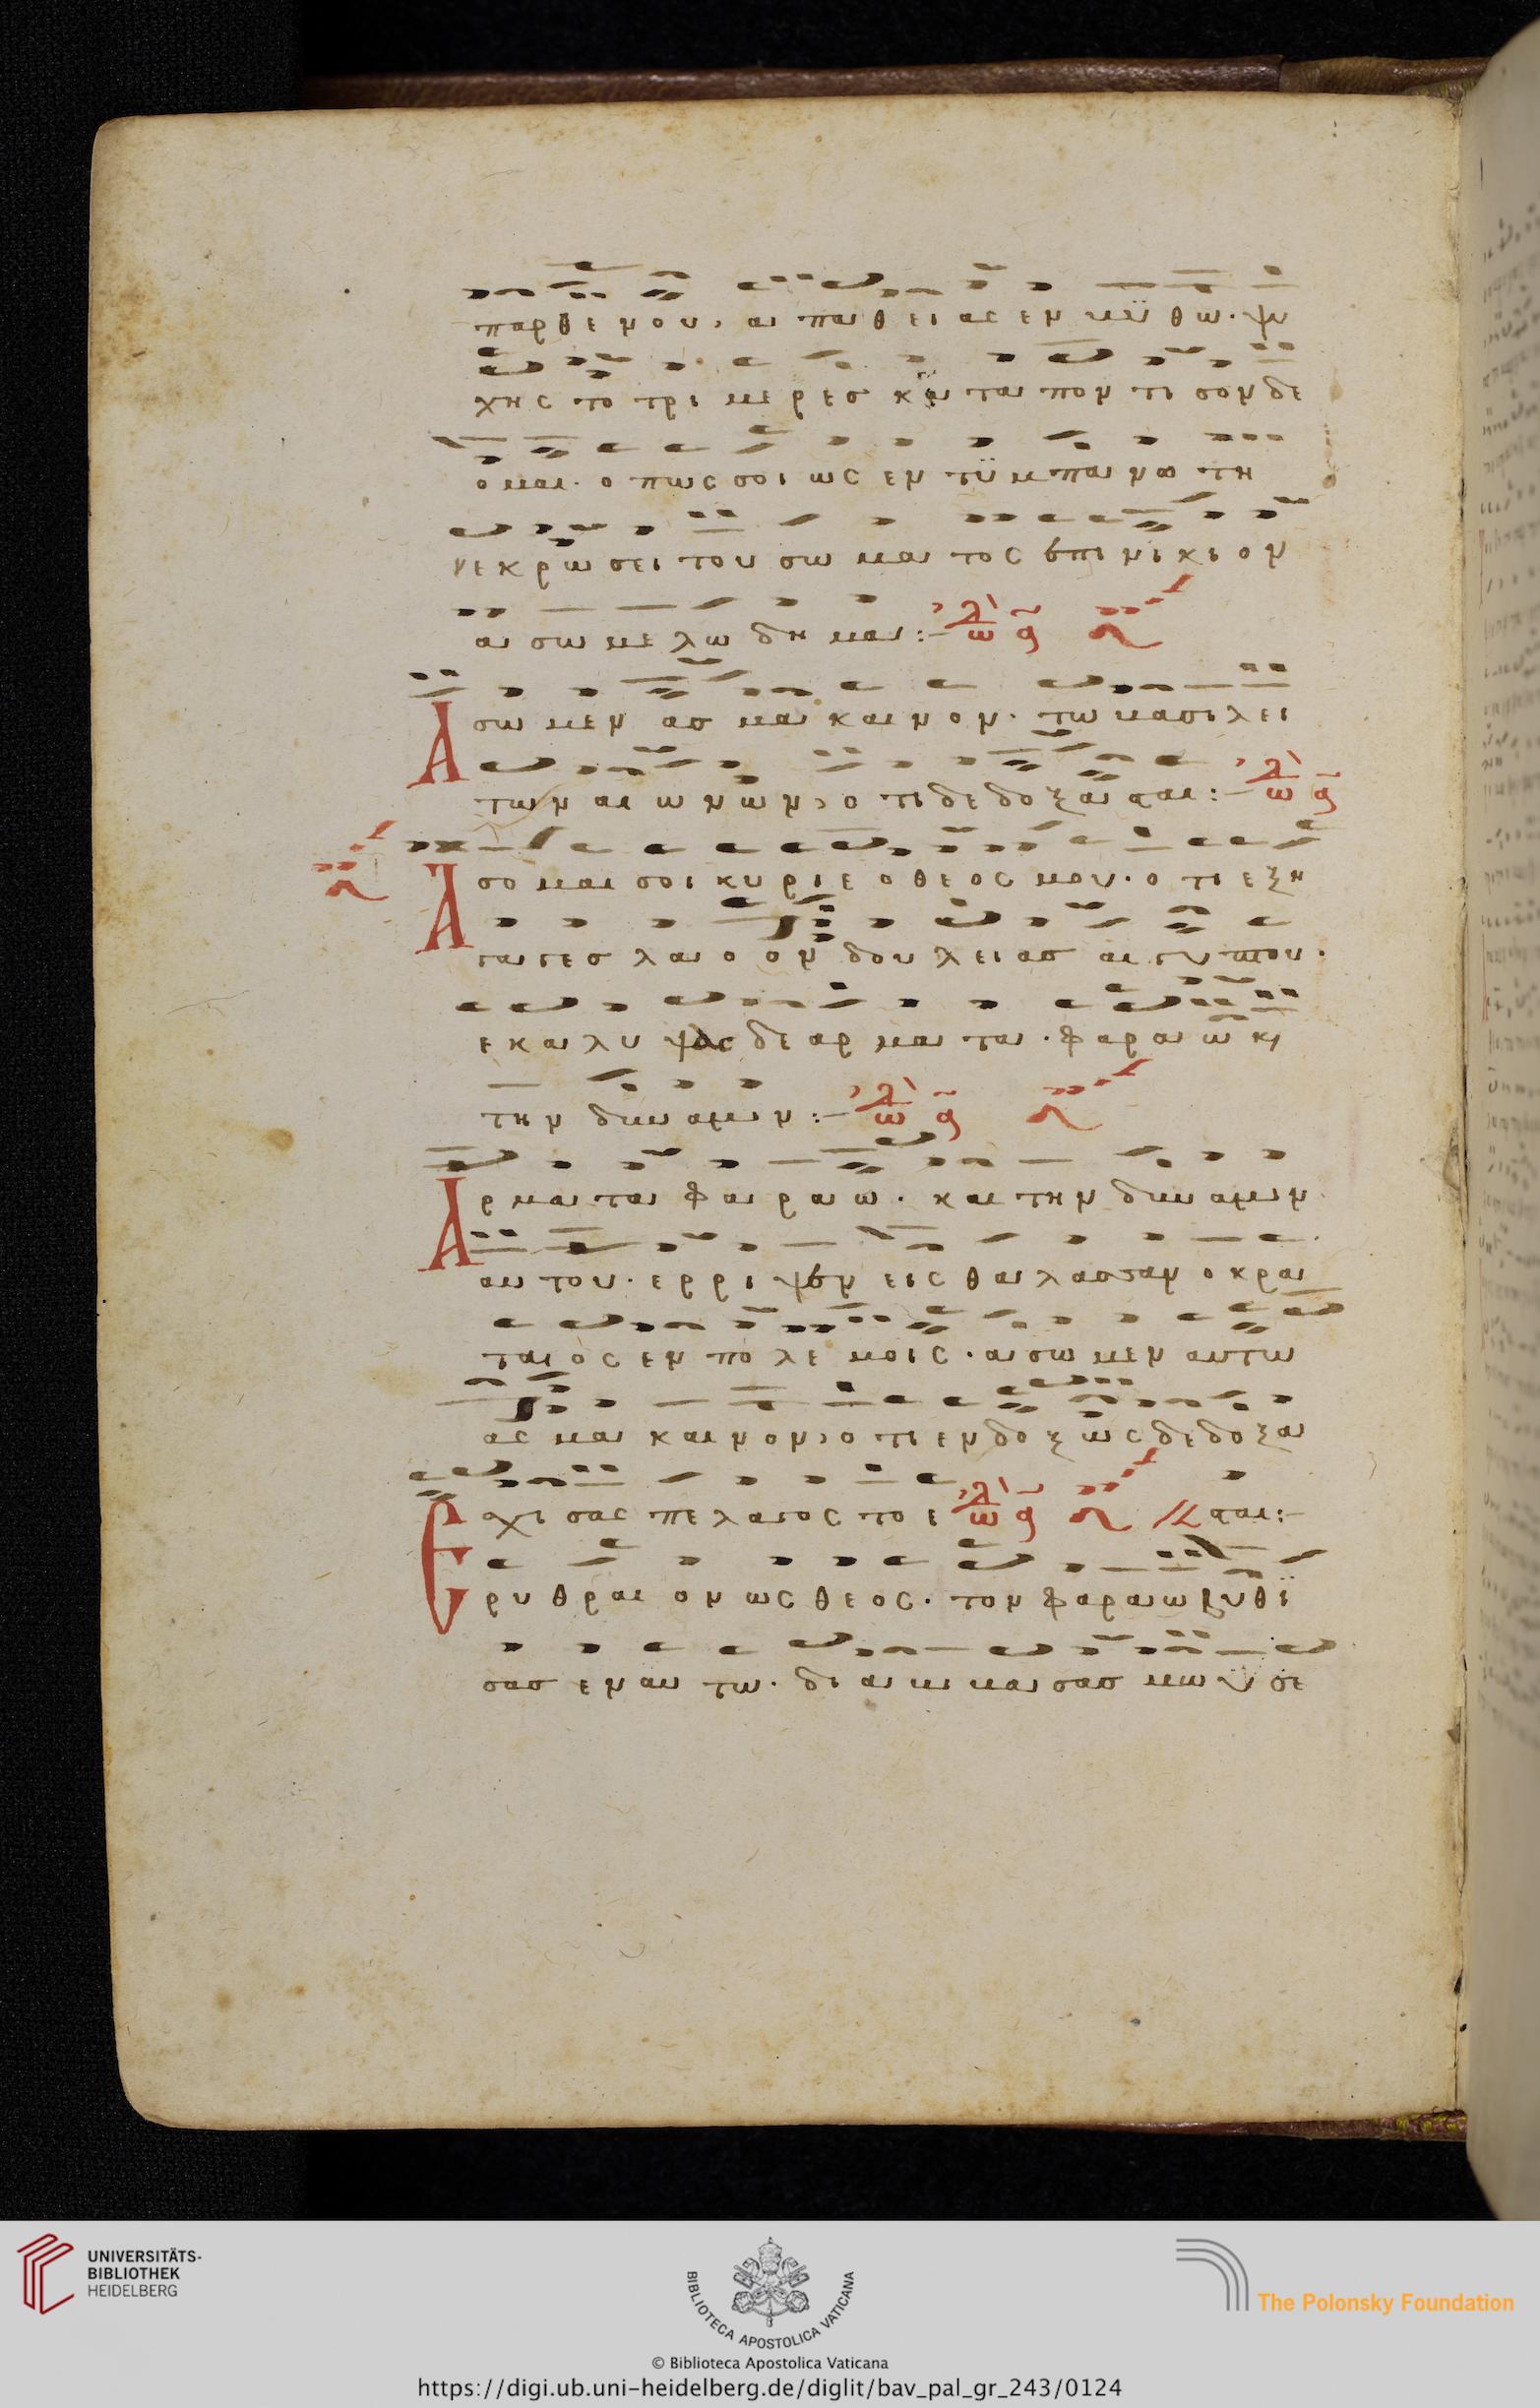 παρθενου, απαθειας εν βυθω· ψυ
χης το τριμερες καταποντισον δε
ομαι· οπως σοι ως εν τυμπανω τη
νεκρωσει του σωματος επινικιον
ασω μελωδημα:–
Ασωμεν ασμα καινον· τω βασιλει
των αιωνων, οτι δεδοξασται:–
Ασομαι σοι κυριε ο θεος μου· οτι εξη
γαγες λαον δουλειας αιγυπτου·
εκαλυψας δε αρματα· φαραω κ,
την δυναμιν:–
Αρματα φαραω· και την δυναμιν
αυτου· ερριψεν εις θαλασσαν ο κρα
ταιος εν πολεμοις· ασωμεν αυτω
ασμα καινον, οτι ενδοξως δεδοξα
Εσχισας πελαγος το ε σται:–
ρυθραιον ως θεος· τον φαραω βυθι
σας εν αυτω· διαβιβασας μωυσε
UNIVERSITÄTS-
BIBLIOTHEK
HEIDELBERG
BIBLIOTECA APOSTOLICA VATICANA
© Biblioteca Apostolica Vaticana
The Polonsky Foundation
https://digi.ub.uni-heidelberg.de/diglit/bav_pal_gr_243/0124